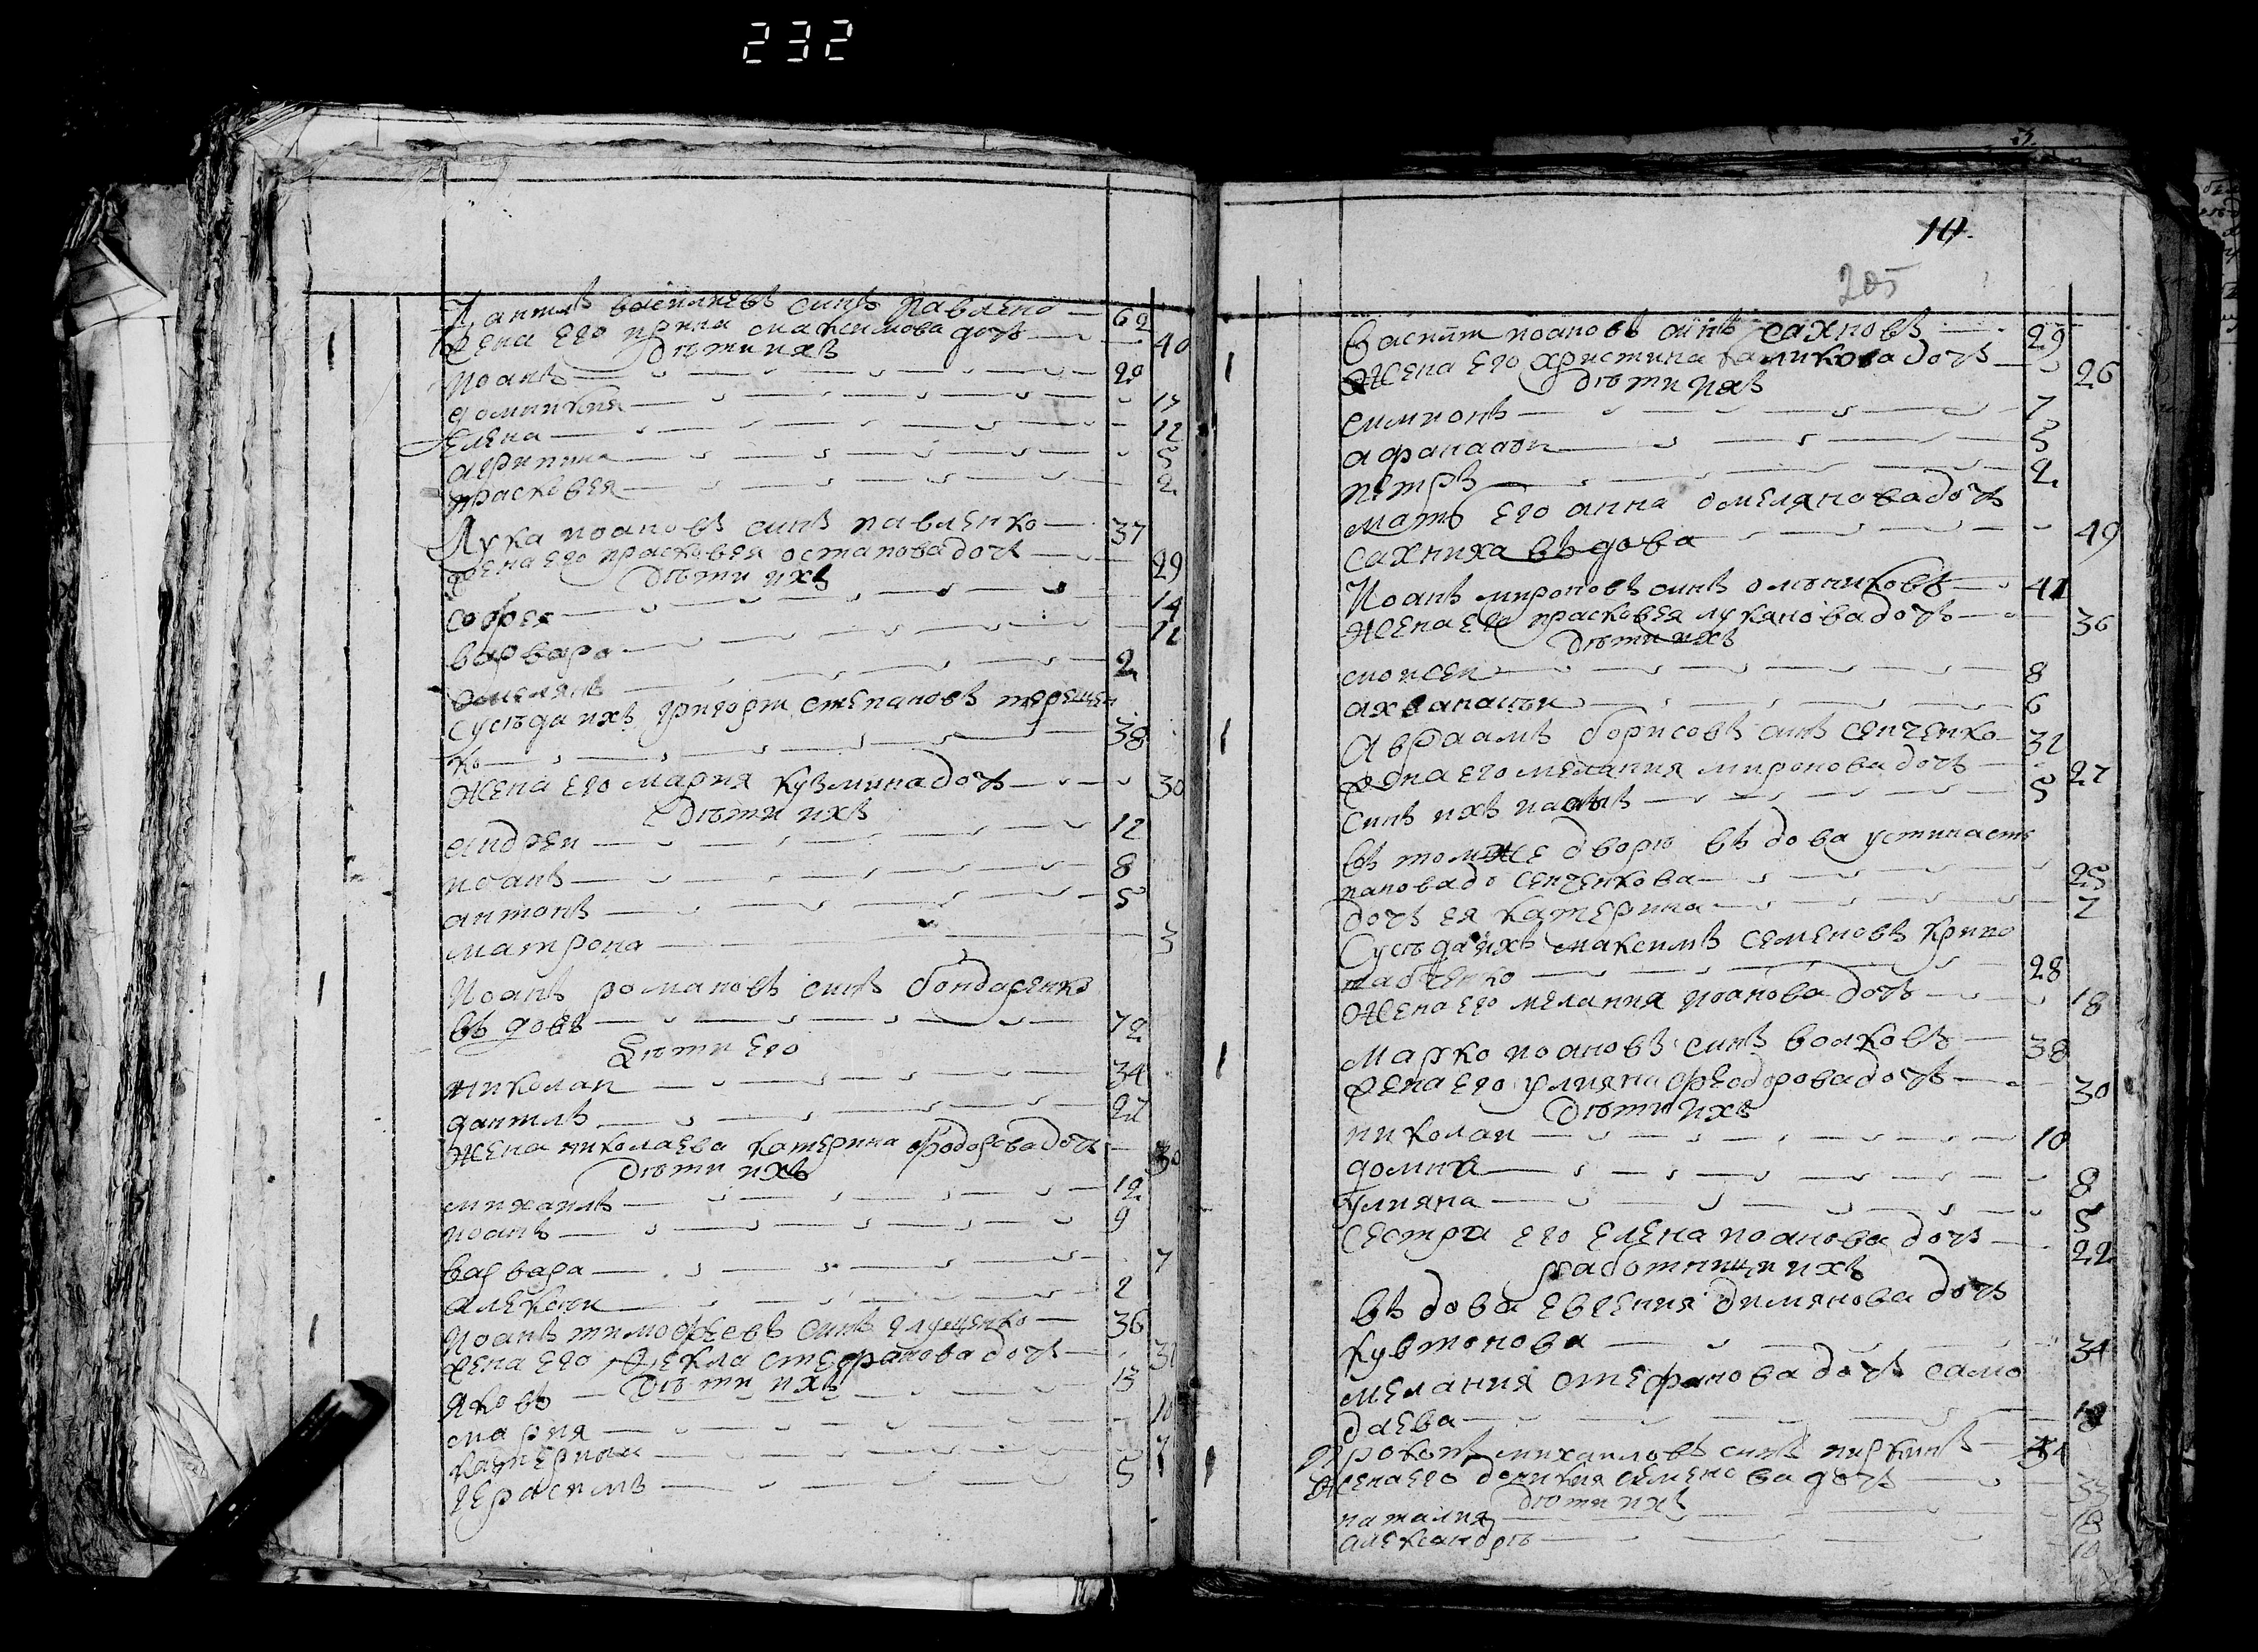 232
Даниилъ василиевъ синъ павлено 62
Жена его ирина максимова дочъ 40
Дѣти ихъ
Иоанъ 20
домникия 17
Елена 12
агрипина 5
прасковея 2
Лука иоановъ синъ павленко 37
Жена его прасковея остапова дочъ 29
Дѣти ихъ
софея 14
варвара 12
омелянъ 2
Сусѣда ихъ григорий степановъ терещен
ко 38
Жена его мария кузмина дочъ 30
Дѣти ихъ
андреи 12
иоанъ 8
антонъ 5
матрона 3
Иоанъ романовъ синъ бондаренко
въдовъ 72
Дѣти его
николаи 34
даниилъ 27
Жена николаева катерина федорова дочъ 30
Дѣти ихъ
михаилъ 12
иоанъ 9
варвара 7
алексѣи 2
Иоанъ тимофѣевъ синъ глущенко 36
Жена его Фекла стефанова дочъ 31
Дѣти ихъ
яковъ 13
мария 10
катерина 7
герасимъ 5
10
205
Василий иоановъ синъ сахновъ 29
Жена его христина калиикова дочъ 26
Дѣти ихъ
симионъ 7
афанасѣи 5
петръ 2
мать его анна омелянова дочъ
сахниха въдова 49
Иоанъ мироновъ синъ олѣниковъ 41
Жена его прасковея лукянова дочъ 36
Дѣти ихъ
моисеи 8
ахванасѣи 6
Авраамъ борисовъ синъ сенченко 32
Жена его мелания миронова дочъ 27
Синъ ихъ иоанъ 5
въ томже дворѣ въдова устина сте
панова до сенченкова 25
дочъ ея катерина 7
Сусѣда ихъ максимъ семеновъ криво
шабченко 28
Жена его мелания иоанова дочъ 18
Марко иоановъ синъ волковъ 38
Жена его улияна феодорова дочъ 30
Дѣти ихъ
николаи 10
домника 8
улияна 5
сестра его елена иоанова дочъ 22
работници ихъ
въдова евгения димянова дочъ
кувтонова 34
мелания стефанова дочъ само
даева 18
Прокопъ михаиловъ синъ пиркинъ
Жена его домникия семенова дочъ 33
Дѣти ихъ
наталия 18
александръ 10